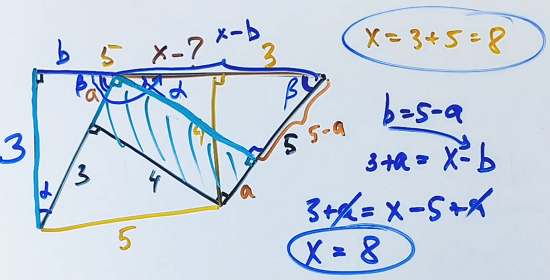 x-b
b 5 x-7 3
x = 3+5 = 8
β α β
a
3
3 4 5 5-a
α a
5
b = 5-a
3+a = x-b
3+a = x-5+a
x = 8